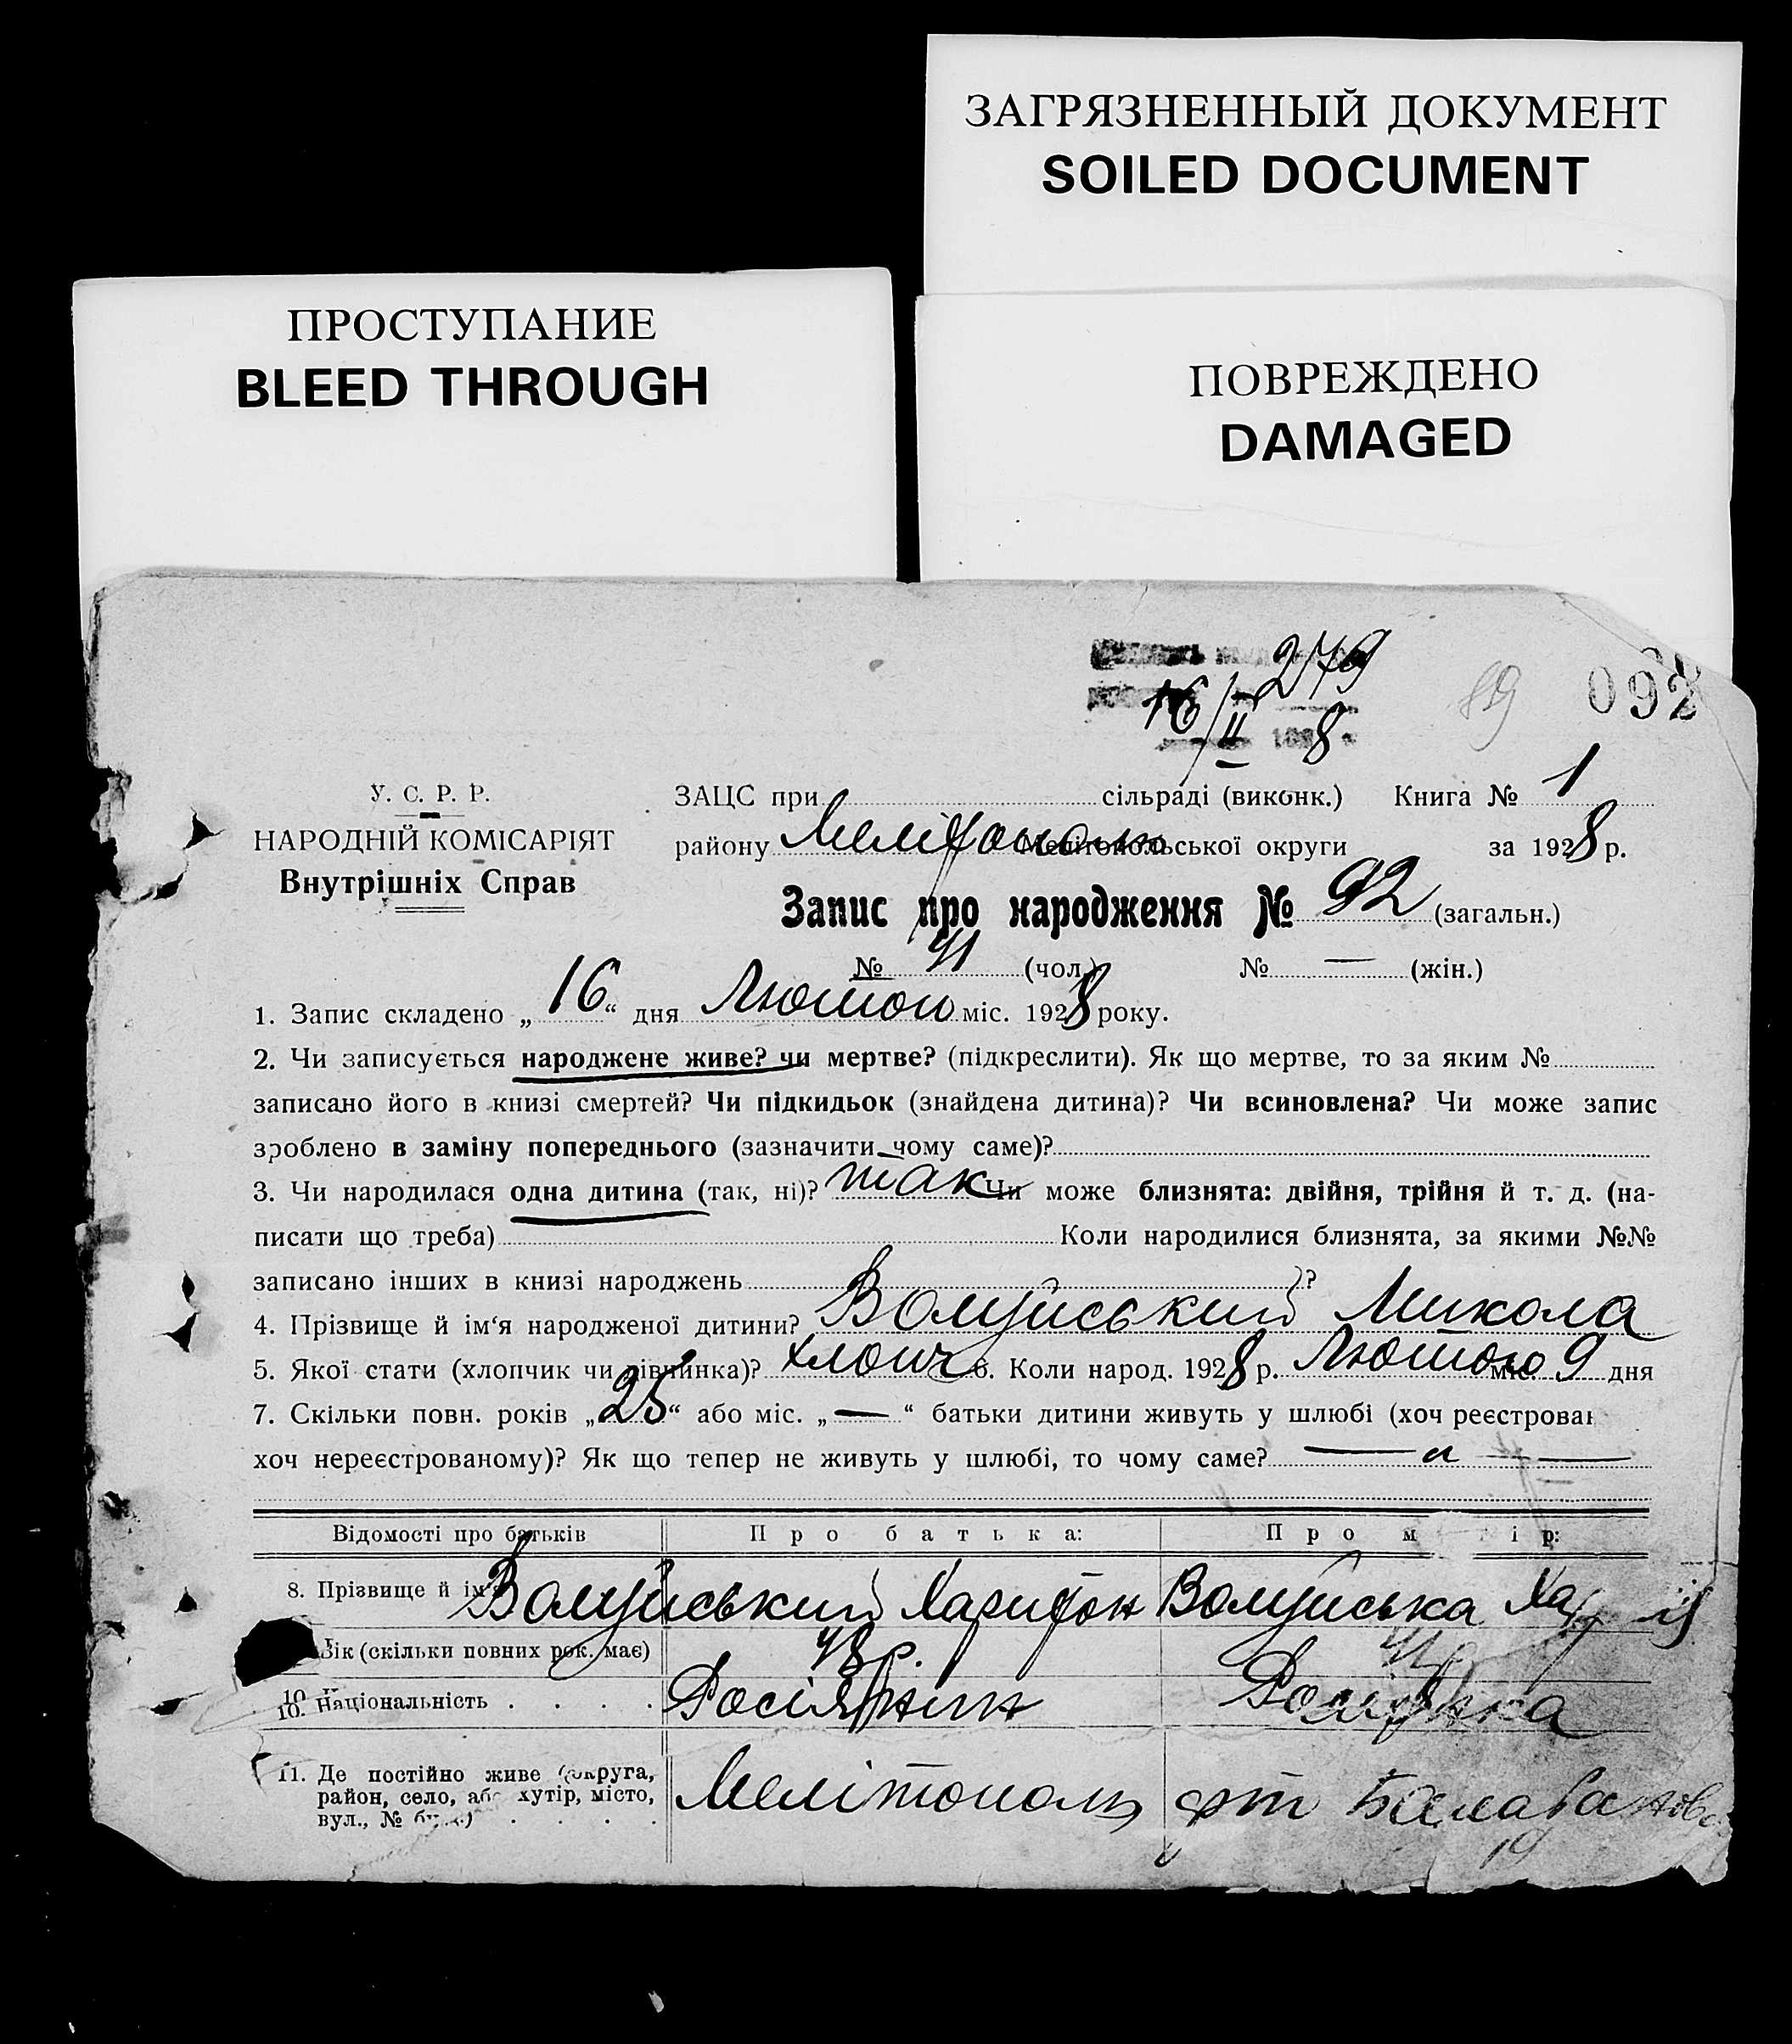 ЗАГРЯЗНЕННЫЙ ДОКУМЕНТ
SOILED DOCUMENT
ПРОСТУПАНИЕ
BLEED THROUGH
ПОВРЕЖДЕНО
DAMAGED
279
16/II 8
89 092
У. С. Р. Р.
НАРОДНІЙ КОМІСАРІЯТ
Внутрішніх Справ
ЗАЦС при сільраді (виконк.) Книга № 1
району Мелітопольської округи за 1928 р.
Запис про народження № 92 (загальн.)
№ 41 (чол.) № — (жін.)
1. Запис складено „16“ дня Лютого міс. 1928 року.
2. Чи записується народжене живе? чи мертве? (підкреслити). Як що мертве, то за яким №
записано його в книзі смертей? Чи підкидьок (знайдена дитина)? Чи всиновлена? Чи може запис
зроблено в заміну попереднього (зазначити чому саме)?
3. Чи народилася одна дитина (так, ні)? так Чи може близнята: двійня, трійня й т. д. (на-
писати що треба) Коли народилися близнята, за якими №№
записано інших в книзі народжень ?
4. Прізвище й ім‘я народженої дитини? Валуйський Микола
5. Якої стати (хлопчик чи дівчинка)? хлопч 6. Коли народ. 1928 р. Лютого міс. 9 дня
7. Скільки повн. років „25“ або міс. „—“ батьки дитини живуть у шлюбі (хоч реєстрован
хоч нереєстрованому)? Як що тепер не живуть у шлюбі, то чому саме? — —
Відомості про батьків Про батька: Про м ір:
8. Прізвище й ім'я Валуйський Харитон Валуйська
Вік (скільки повних рок. має) 48 р.
10. Національність . . . . Росіянин Росіянка
11. Де постійно живе (округа, Мелітополь
район, село, або хутір, місто,
вул., № буд.) . . . .
19